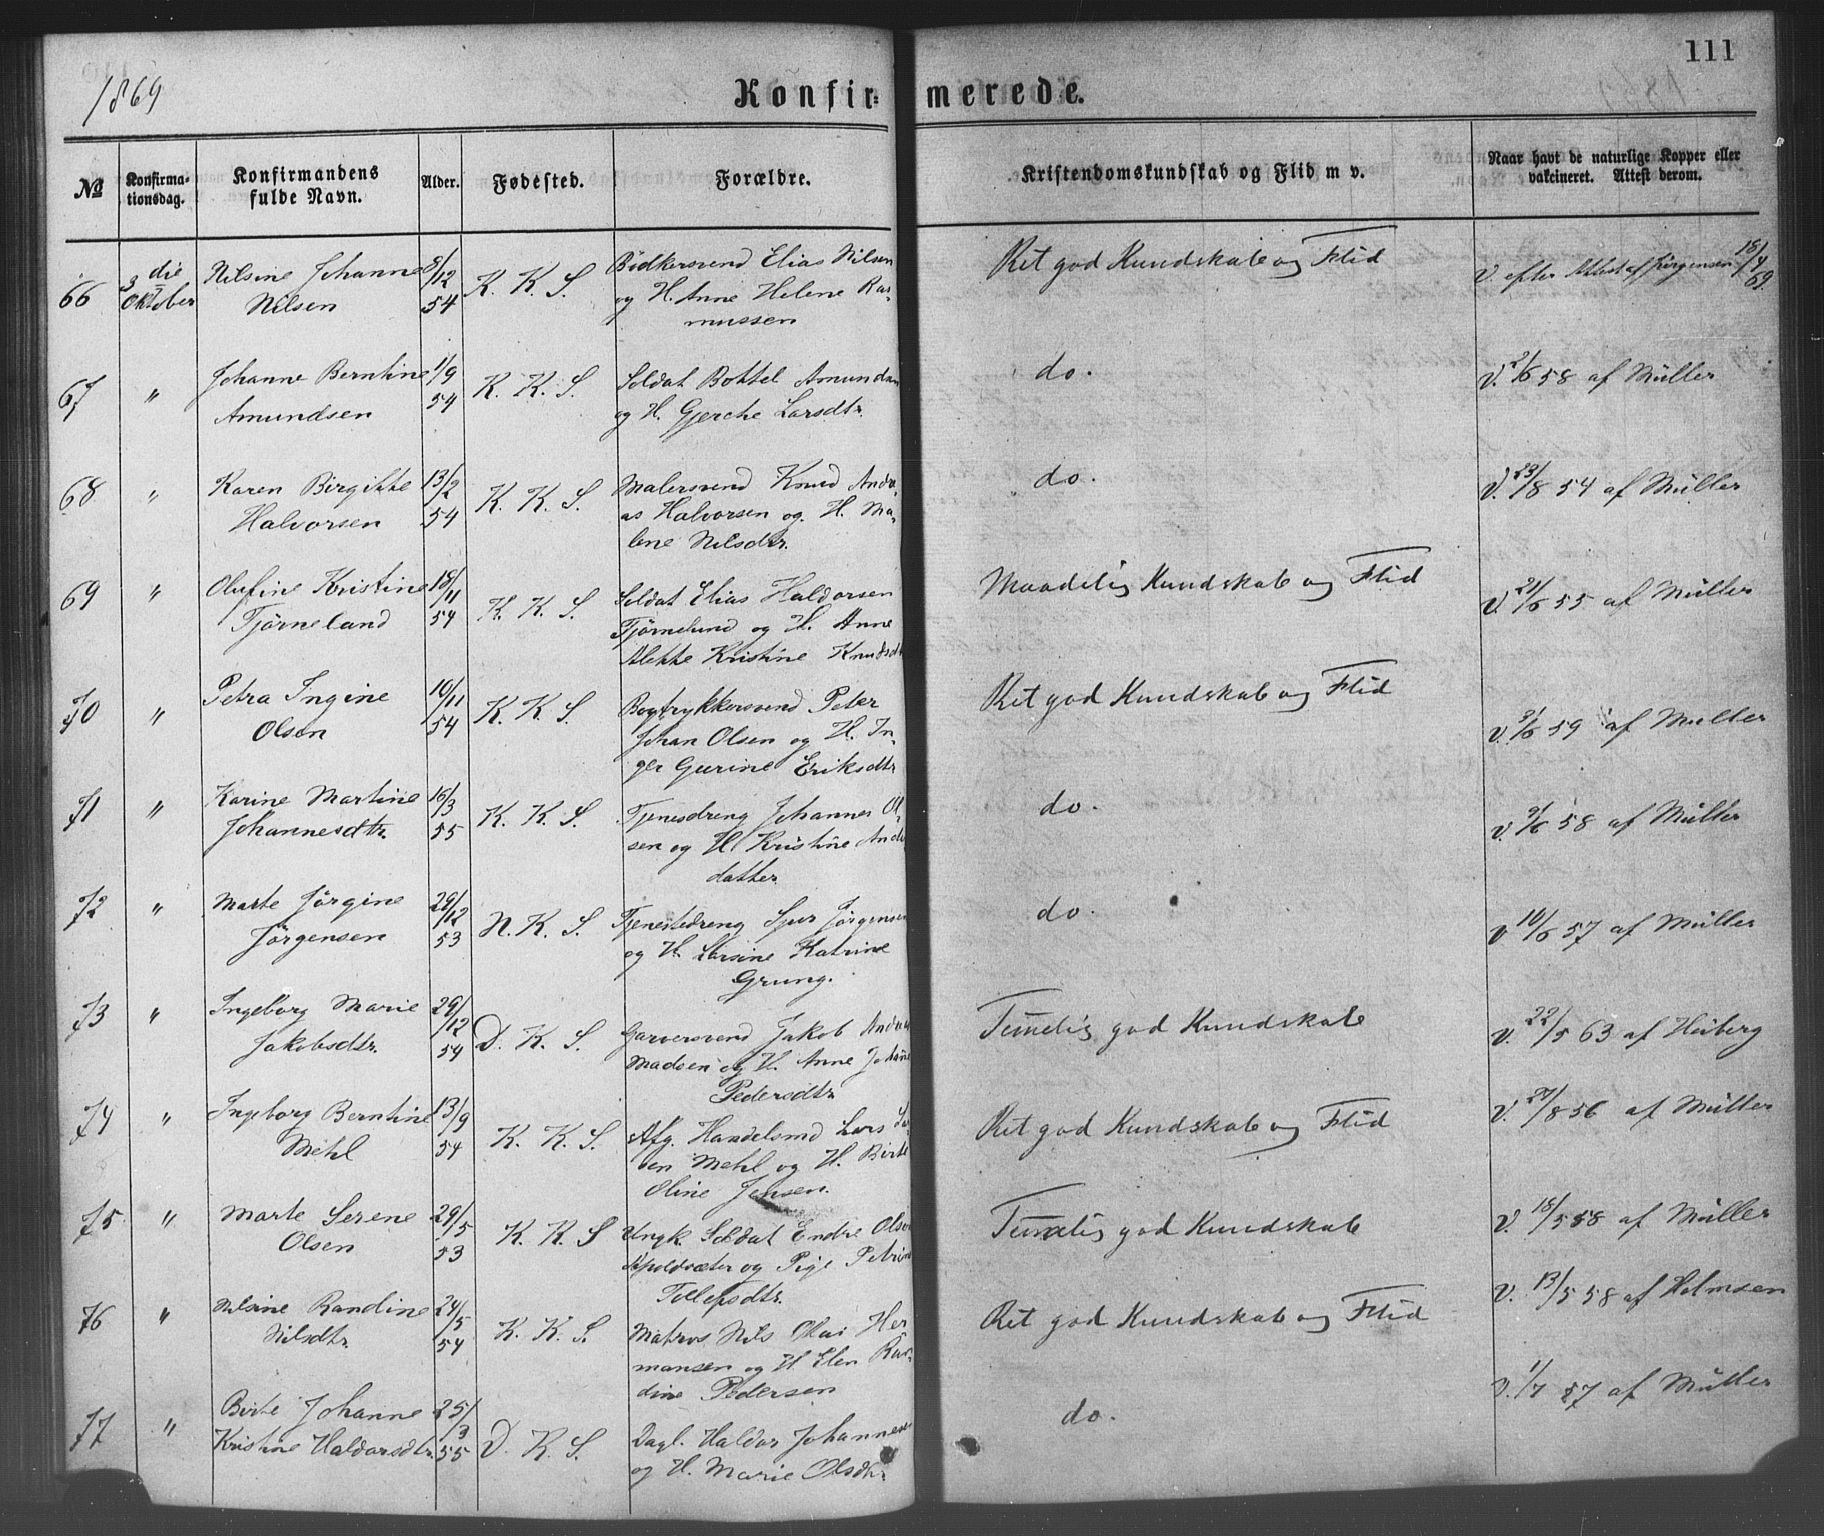 111
1869
Konfir= merede.
No
Konfirma-
tionsdag.
Konfirmandens
fulde Navn.
Alder.
Fødested.
Forældre.
Kristendomskundskab og Flid m v.
Naar havt de naturlige Kopper eller
vakcineret. Attest derom.
66 3die Oktober Nilsine Johanne 8/12 K. K. S. Bødkersvend Elias Nilsen Ret god Kundskab og Flid V. efter Attest af Jörgensen 18/4 69.
Nilsen 54 og H. Anne Helene Ras-
mussen
67 " Johanne Berntine 1/9 K. K. S. Soldat Bottel Amundsen do. V. 2/6 58 af Müller
Amundsen 54 og H. Gjerche Larsdtr.
68 " Karen Birgitte 13/2 K. K. S. Malersvend Knud Andre- do. V. 23/8 54 af Müller
Halvorsen 54 as Halvorsen og H. Ma-
lene Nilsdtr.
69 " Olufine Kristine 18/11 K. K. S. Soldat Elias Haldorsen Maadelig Kundskab og Flid V. 21/6 55 af Müller
Tjørneland 54 Tjørnelund og H. Anne
Alette Kristine Knudsdtr
70 " Petra Ingine 10/11 K. K. S. Bogtrykkersvend Peter Ret god Kundskab og Flid V. 3/6 59 af Müller
Olsen 54 Johan Olsen og H. In-
ger Gurine Eriksdtr
71 " Karine Martine 16/3 K. K. S. Tjenesdreng Johannes Ol- do. V. 9/6 58 af Müller
Johannesdtr. 55 sen og H. Kristine And
datter
72 " Marte Jörgine 29/12 N. K. S. Tjenestedreng Sjur Jörgensen do. V. 10/6 57 af Müller
Jörgensen 53 og H. Larsine Katrine
Grung.
73 " Ingeborg Marie 29/12 D. K. S. Garversvend Jakob Andreas Temmelig god Kundskab V. 22/5 63 af Heiberg
Jakobsdtr. 54 Madsen og H. Anne Johanne
Pedersdtr
74 " Ingeborg Berntine 13/9 K. K. S. Afg. Handelsmd Lars Ret god Kundskab og Flid V. 27/8 56 af Müller
Mehl 54 sen Mehl og H. Birte
Oline Jensen.
75 " Marte Serene 29/5 K. K. S Ungk. Soldat Endre Olsen Temmelig god Kundskab V. 18/5 58 af Müller
Olsen 53 Apoldsæter og Pige Petrine
Tollefsdtr.
76 " Nilsine Randine 24/5 K. K. S. Matros Nils Olai Her Ret god Kundskab og Flid V. 13/5 58 af Holmsen
Nilsdtr. 54 mansen og H. Elen Ran-
dine Pedersen
77 " Birte Johanne 25/3 D. K. S. Dagl. Haldor Johannesen do. V. 1/7 57 af Müller
Kristine Haldorsdtr. 55 og H. Marie Olsdtr